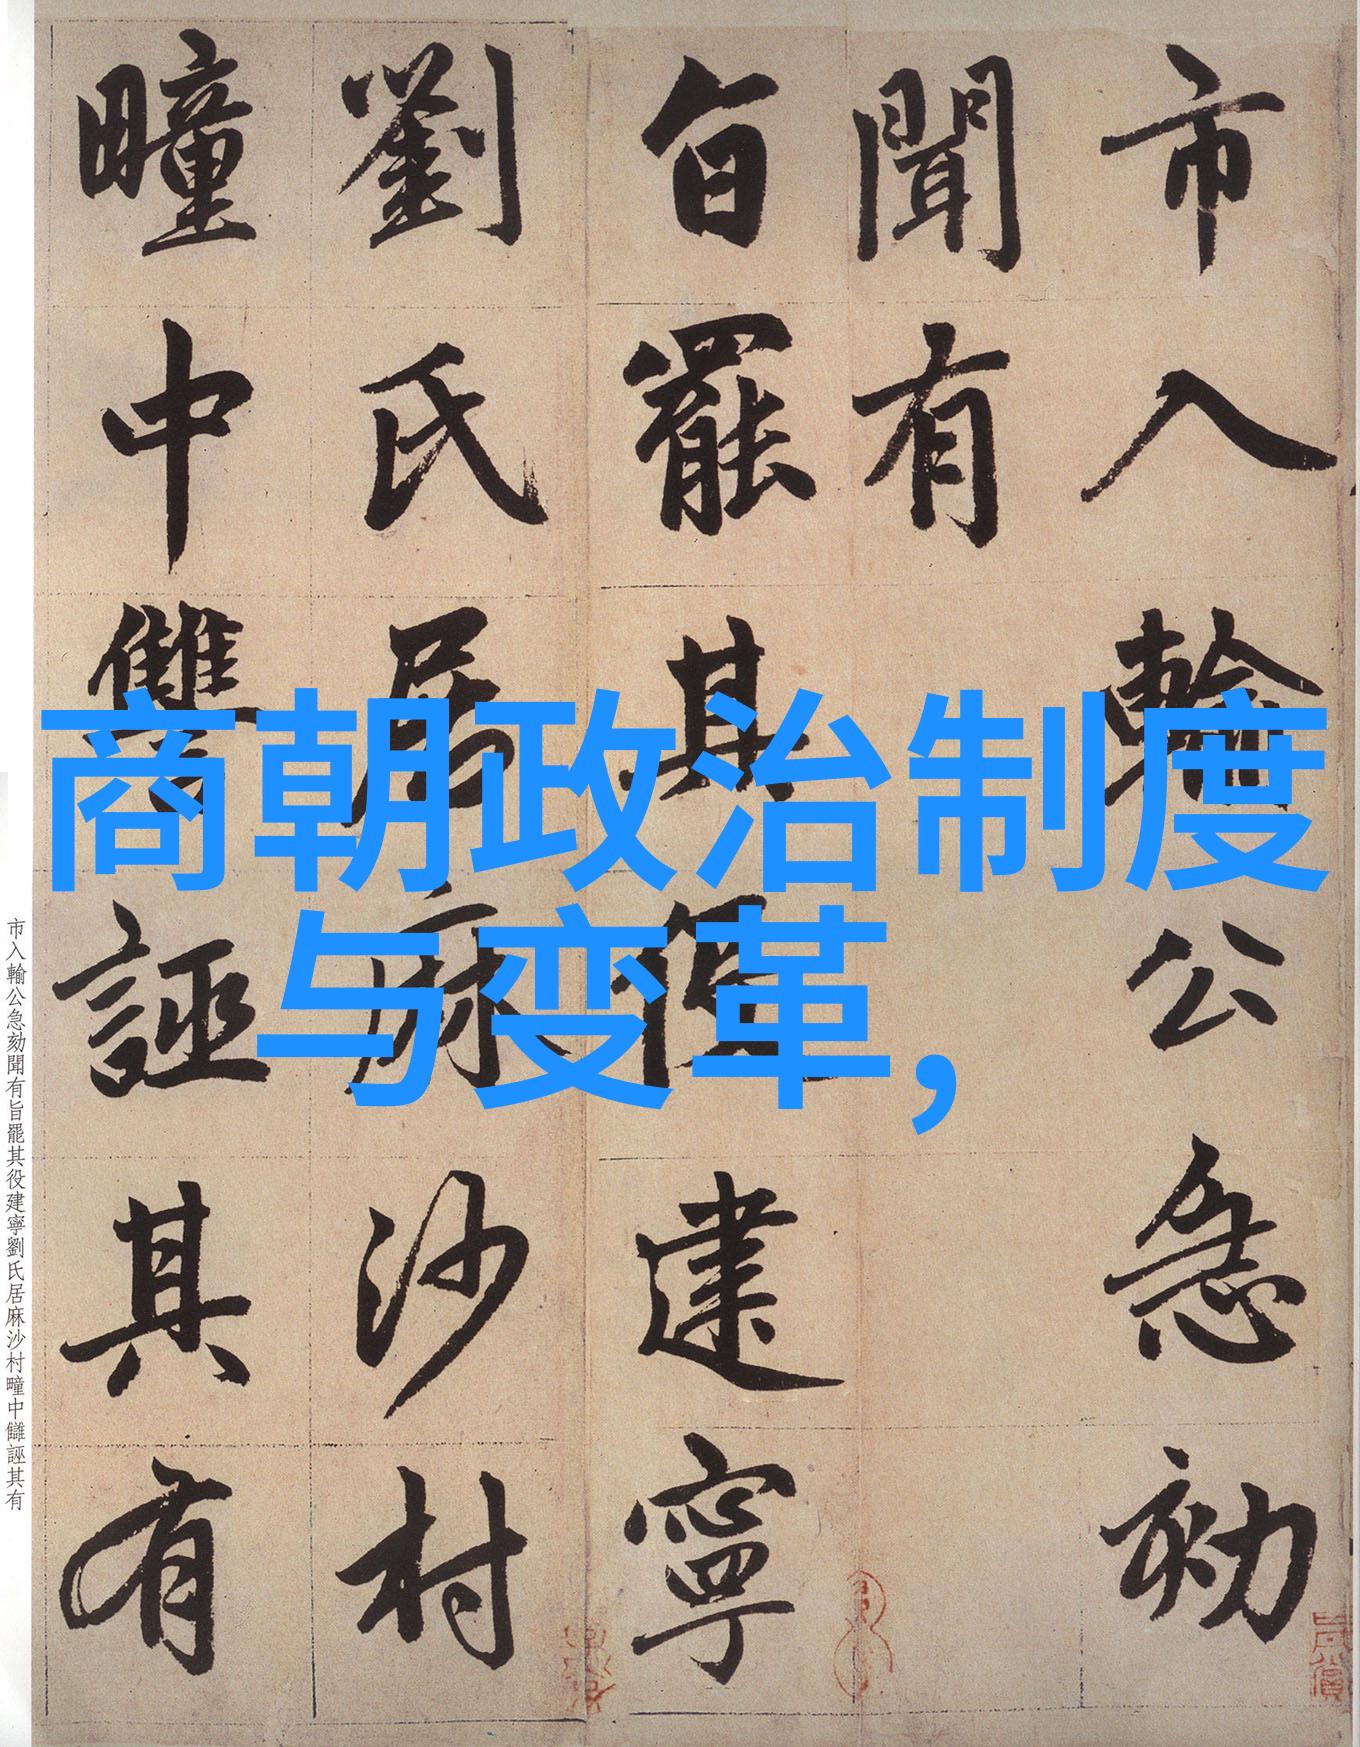 市入輸公急劾
聞有
旨罷其役建寧
劉氏居麻沙村
疃中讎誣其有
商朝政治制度
与变革，
市入輸公急劾聞有旨罷其役建寧劉氏居麻沙村疃中讎誣其有